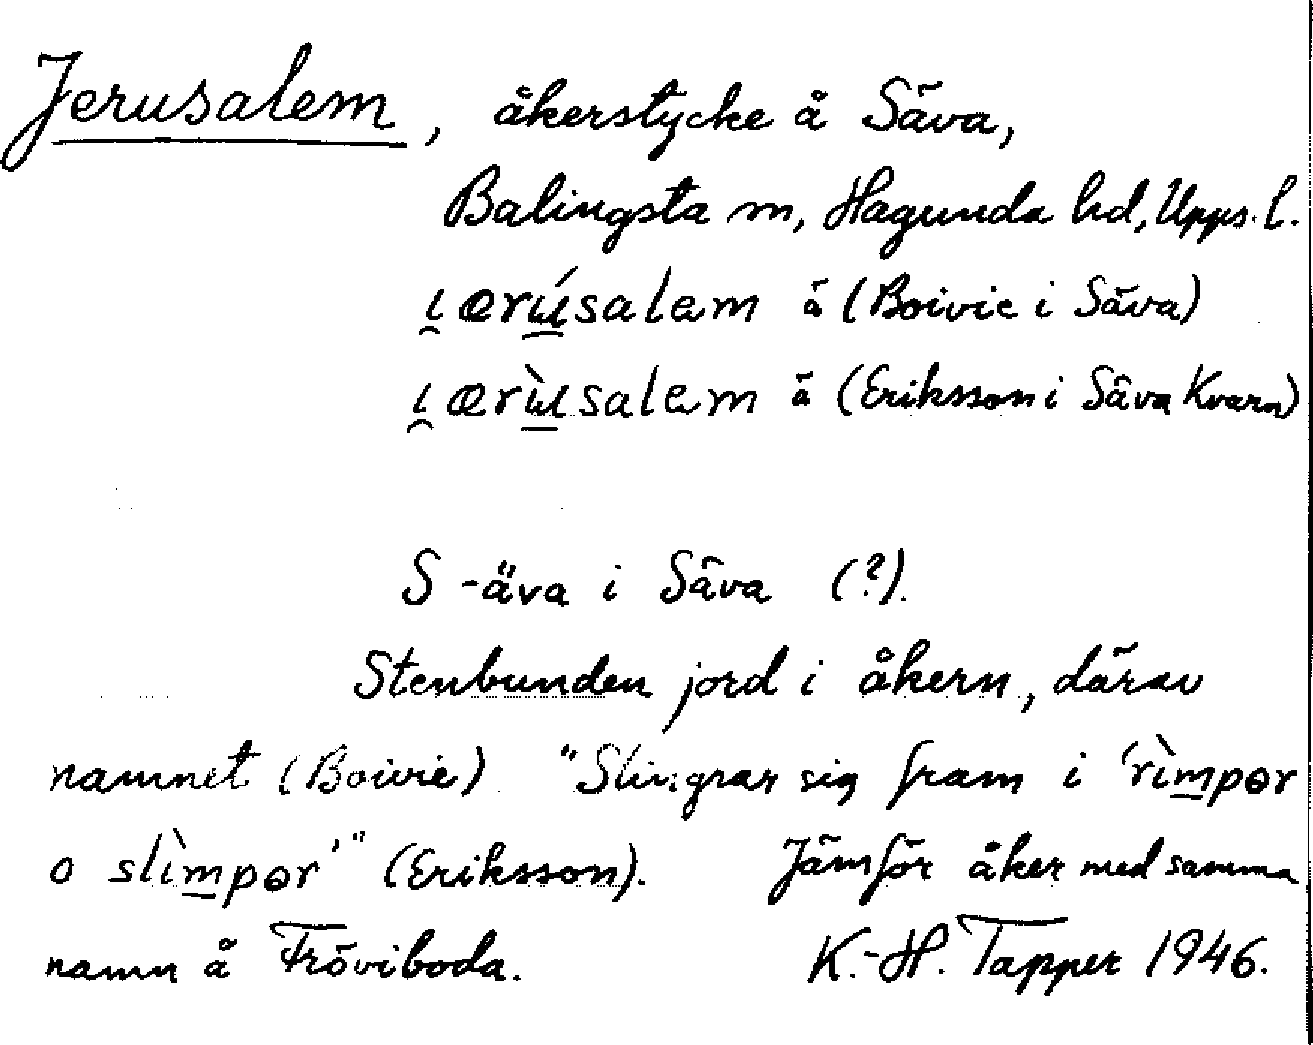 Jerusalem, åkerstycke å Säva,
Balingsta sn, Hagunda hd, Upps. l.
ɩ̯ærúsalem å (Boivie i Säva)
ɩ̯ærùsalem å (Eriksson i Säva Kvarn)
S -äva i Säva (?).
Stenbunden jord i åkern, därav
namnet (Boivie) "Slingrar sig fram i 'rìmpər
o slìmpər'" (Eriksson). Jämför åker med samma
namn å Fröviboda. K.-H. Tapper 1946.